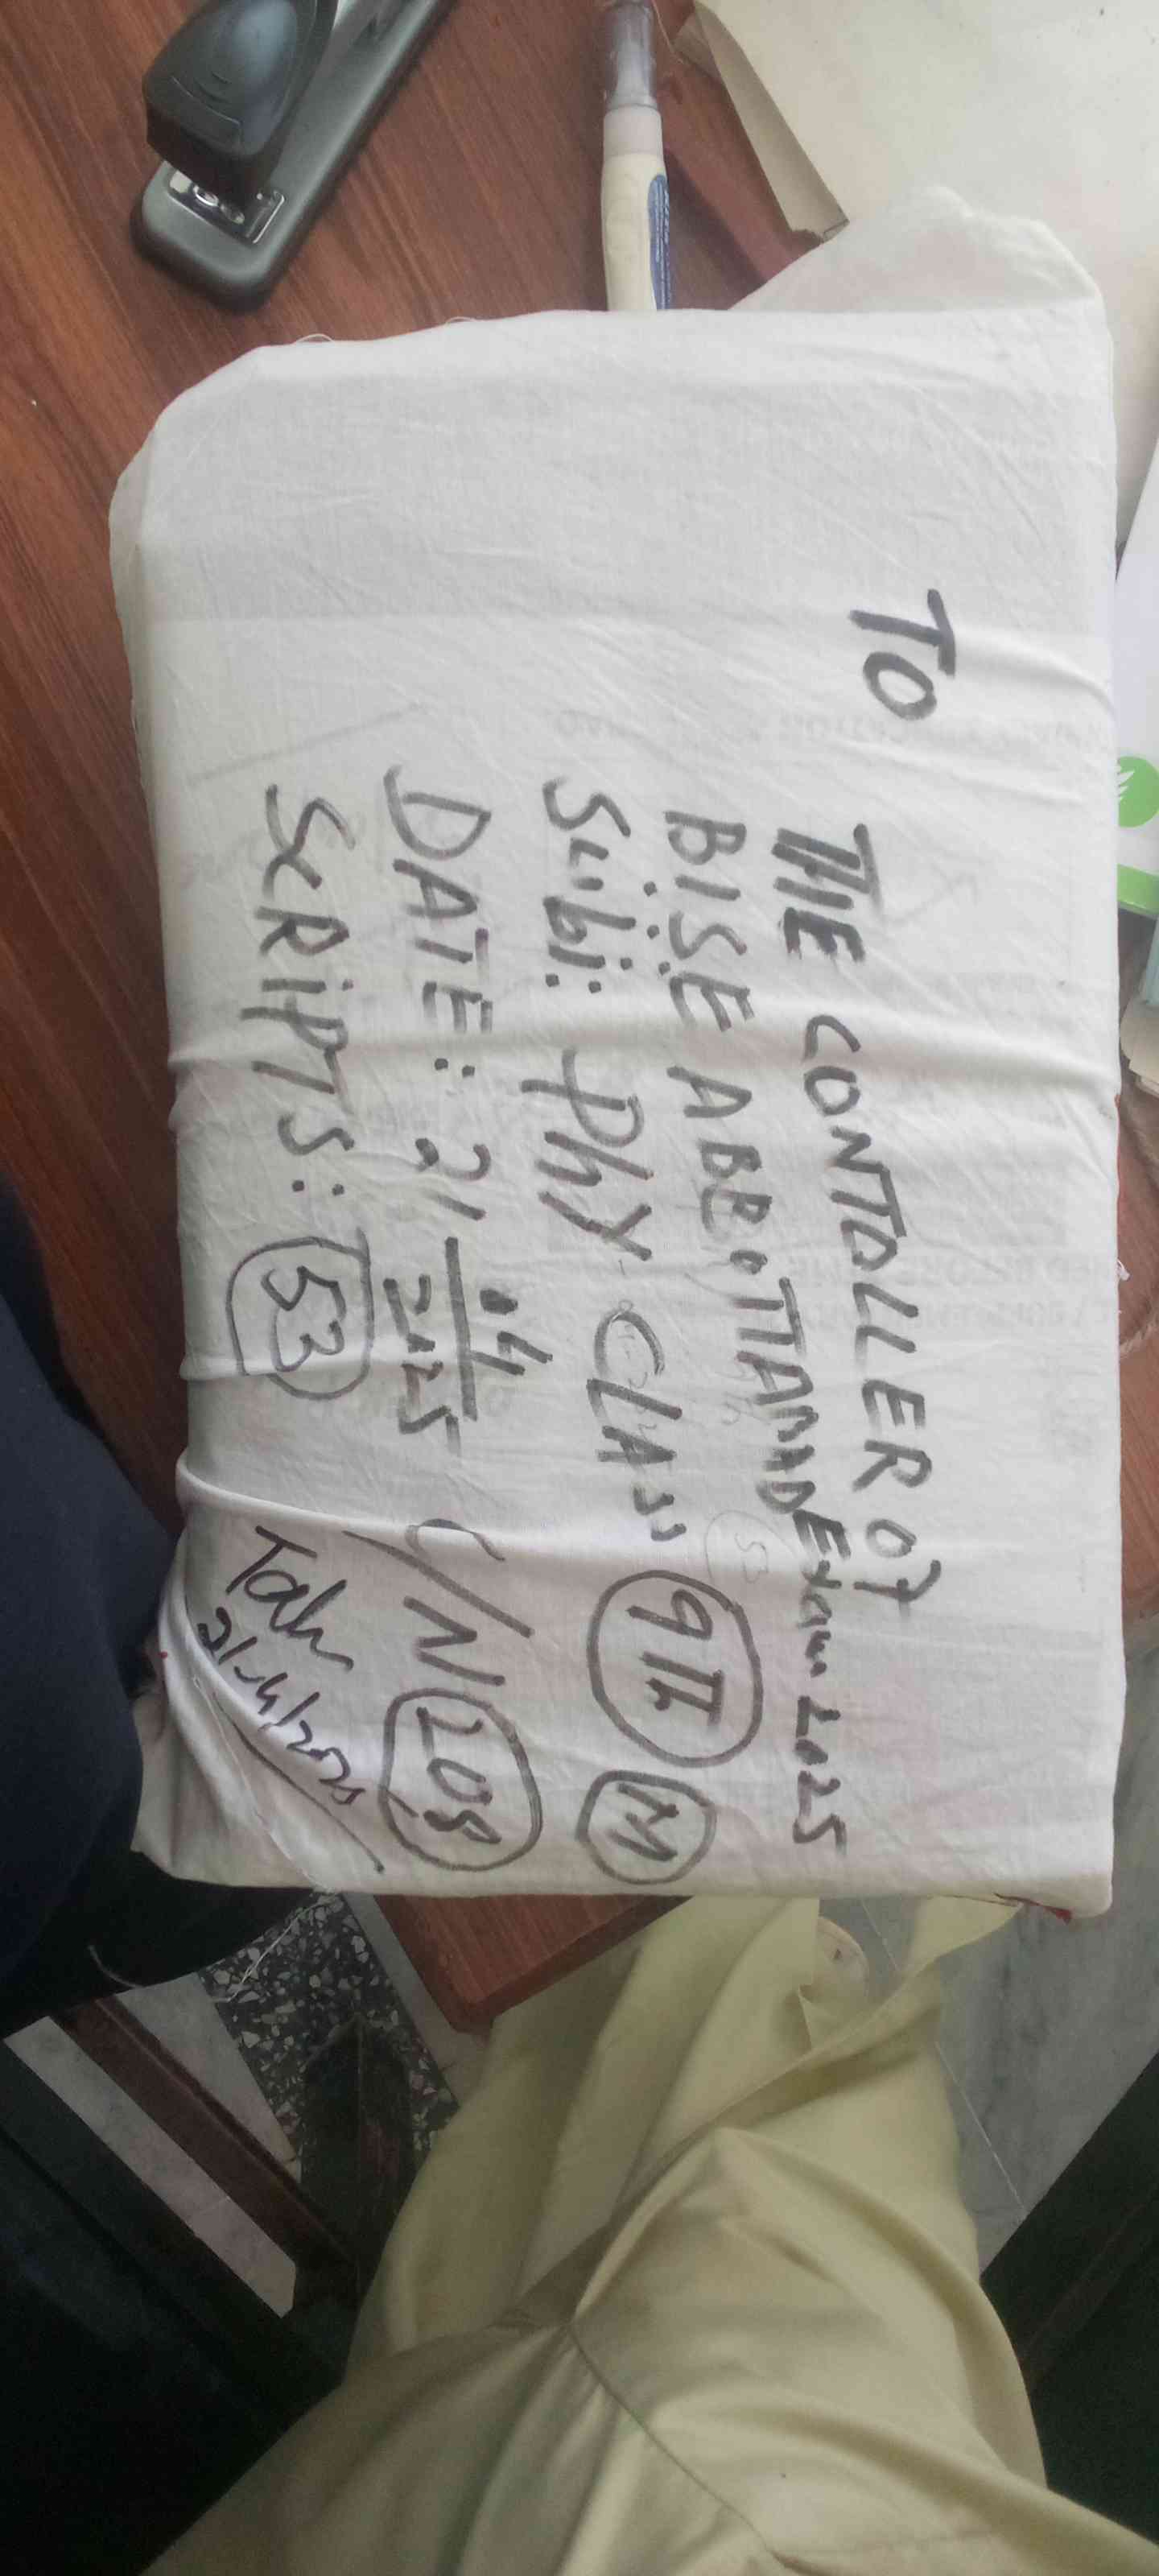 TO
THE CONTOLLER OF
BISE ABBOTTABAD Exam 2025
Subj: Phy CLASS 9TH M
DATE: 21/04/2025 C/N 208
SCRIPTS: 53
21-4/2025